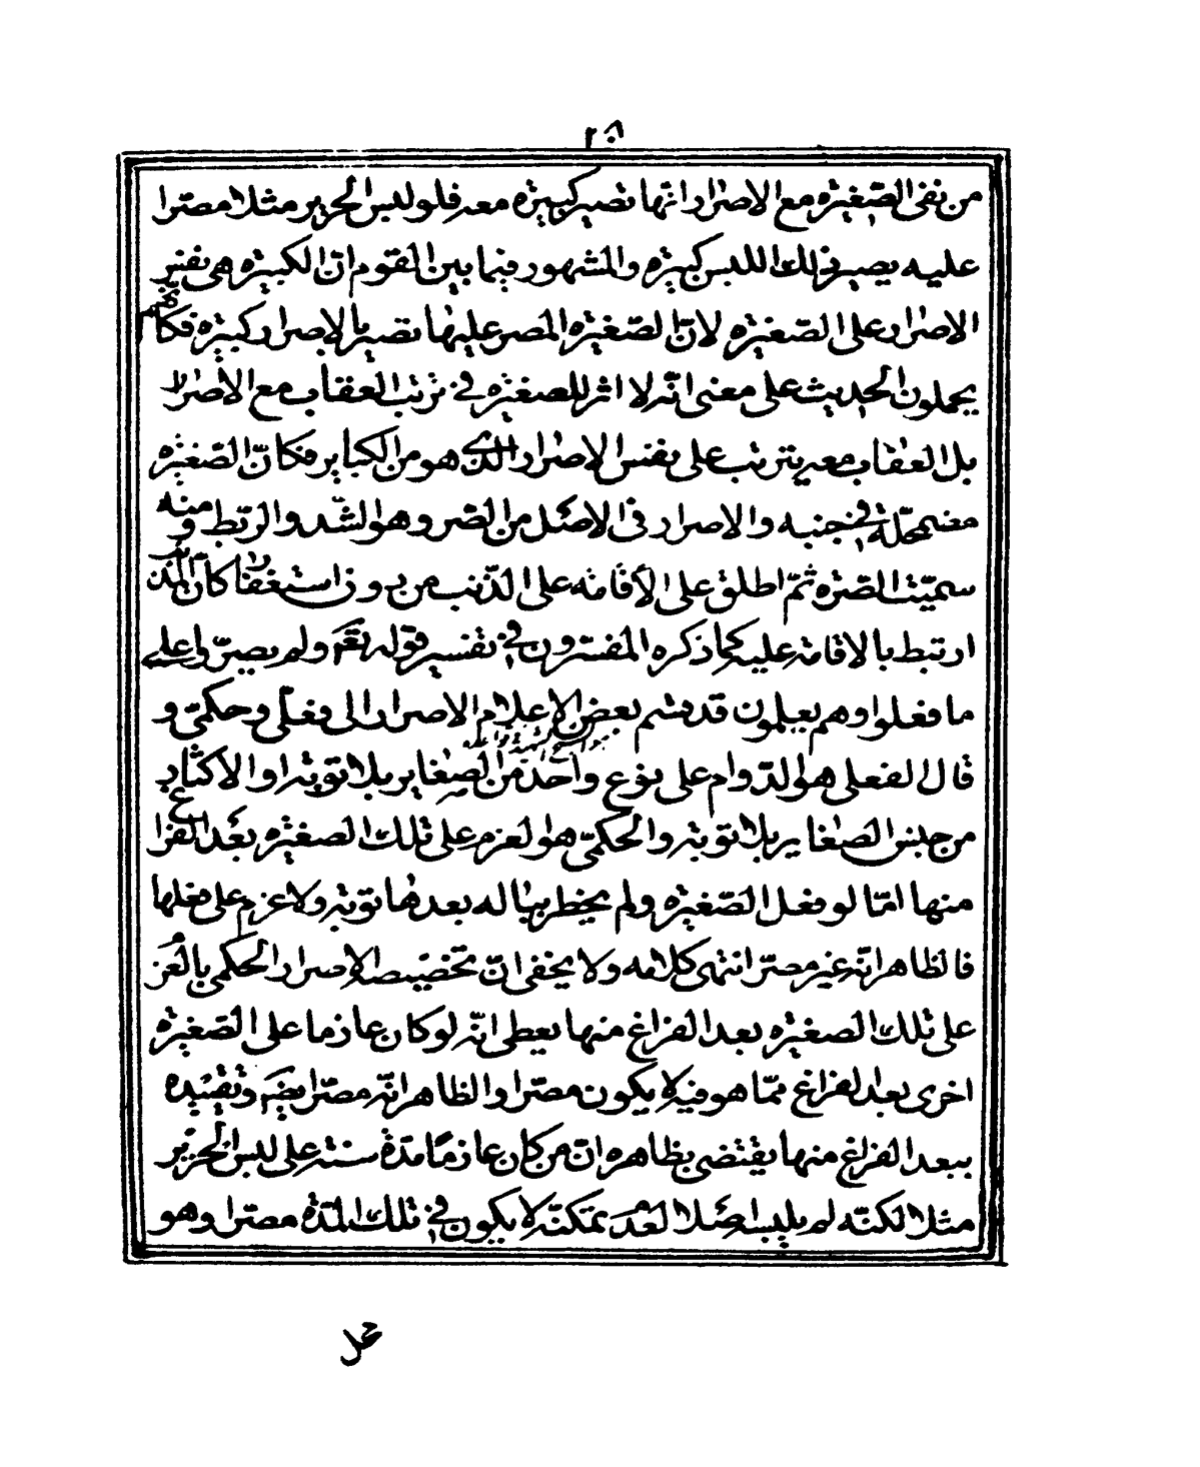 من نفى الصّغيرة مع الاصرار انّها تصير كبيرة معه فلو لبس الحرير مثلا مصرّا
عليه يصير ذلك اللبس كبيرة والمشهور فيما بين القوم انّ الكبيرة هى نفس
الاصرار على الصّغيرة لا انّ الصّغيرة المصر عليها تصير بالاصرار كبيرة فكانّهم
يحملون الحديث على معنى انّه لا اثر للصغيرة في ترتب العقاب مع الاصرار
بل العقاب معه يترتب على نفس الاصرار الذى هو من الكبائر فكانّ الصّغيرة
مضمحلّة في جنبه والاصرار فى الاصل من الصر وهو الشّد والربط ومنه
سميّت الصّرة ثمّ اطلق على الأقامة على الذّنب من دون استغفار كانّ المذنب
ارتبط بالاقامة عليه كما ذكره المفسّرون في تفسير قوله تعم ولم يصرّوا على
ما فعلوا وهم يعلمون قد قسّم بعض الاعلام الاصرار الى فعلّى وحكمىّ و
قال الفعلى هو الدّوام على نوع واحد من الصغاير بلا توبة او الاكثار
من جنس الصغاير بلا توبة والحكمىّ هو العزم على تلك الصغيرة بعد الفراغ
منها امّا لو فعل الصّغيرة ولم يخطر بباله بعدها توبة ولا عزم على فعلها
فالظاهر انّه غير مصرّ انتهى كلامه ولا يخفى انّ تخصيصه الاصرار الحكمى بالعزم
على تلك الصغيرة بعد الفراغ منها يعطى انّه لو كان عازما على الصّغيرة
اخرى بعد الفراغ ممّا هو فيه لا يكون مصرّا والظاهر انّه مصرّ ايضا وتقييده
ببعد الفراغ منها يقتضى بظاهره انّ من كان عازمًا مدّة سنة على لبس الحرير
مثلا لكنّه لم يلبسه اصلا لعدم تمكنّه لا يكون في تلك المدّة مصرا وهو
محل